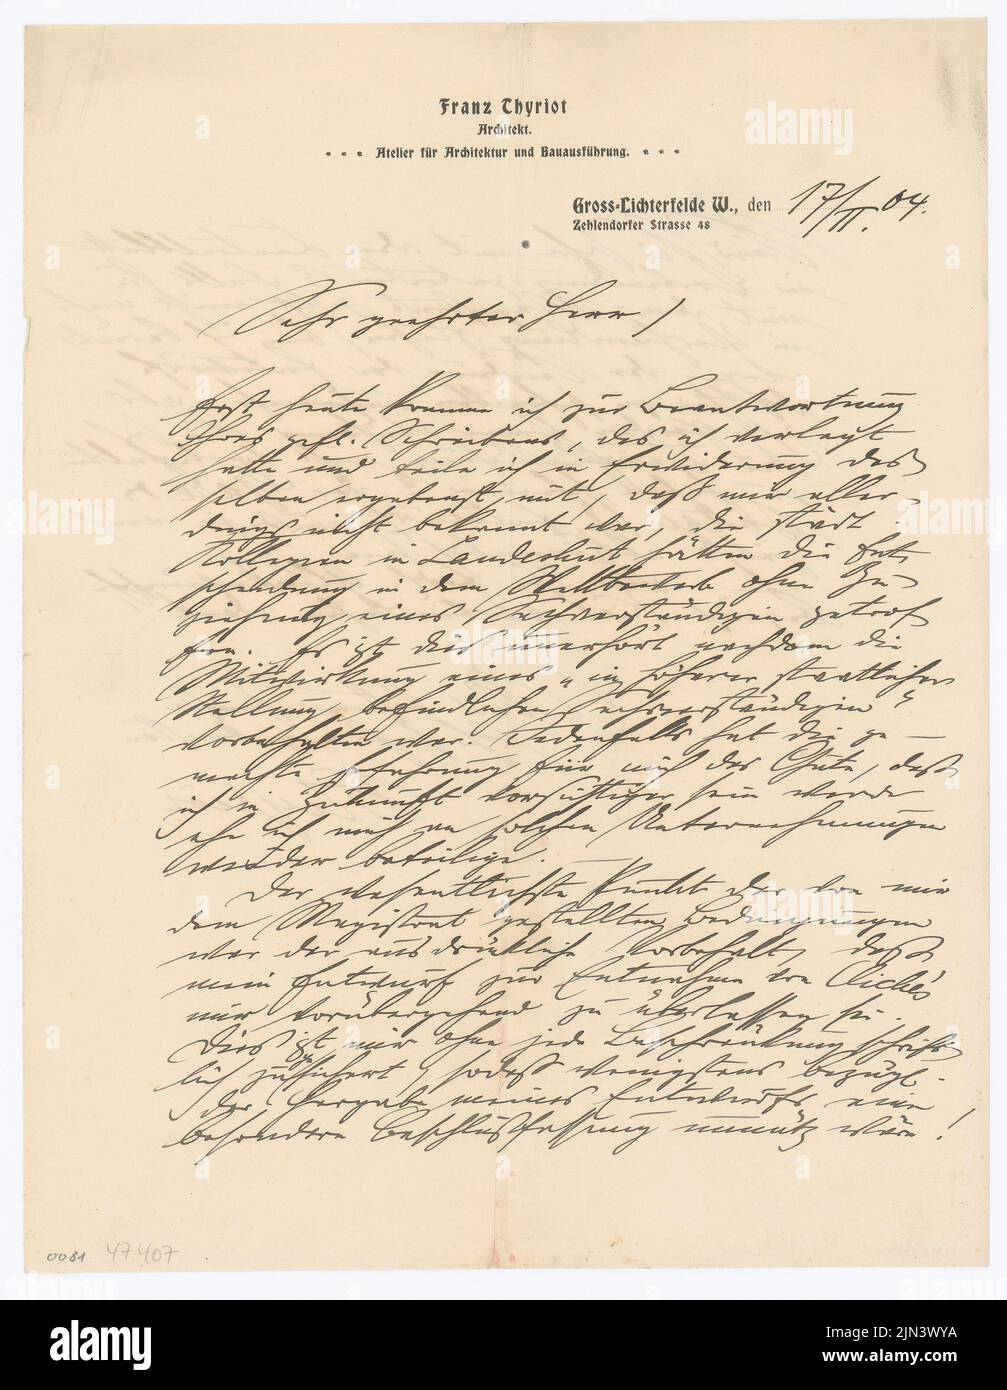 Franz Thyriot
Architekt.
Atelier für Architektur und Bauausführung.
Gross-Lichterfelde W., den 17/II. 04.
Zehlendorfer Strasse 48
Sehr geehrter Herr!
Erst heute komme ich zur Beantwortung
Ihres gefl. Schreibens, das ich verlegt
hatte und teile ich in Erwiderung des-
selben ergebenst mit, daß mir aller-
dings nicht bekannt war, die städt.
Kollegien in Landeshut hätten die Ent-
scheidung in dem Wettbewerb ohne Zu-
ziehung eines Sachverständigen getrof-
fen. Es ist dies unerhört nachdem die
Mitwirkung eines „in höherer staatlicher
Stellung befindlichen Sachverständigen“
vorbehalten war. Jedenfalls hat die ge-
machte Erfahrung für mich das Gute, daß
ich in Zukunft vorsichtiger sein werde
ehe ich mich an solchen Unternehmungen
wieder beteilige. —
Der wesentlichste Punkt der von mir
dem Magistrat gestellten Bedingungen
war der ausdrückliche Vorbehalt, daß
mein Entwurf zur Entnahme von Clichés
mir vorübergehend zu überlassen sei.
Dies ist mir ohne jede Beschränkung schrift-
lich zugesichert, sodaß wenigstens bezügl.
der Hergabe meines Entwurfs eine
besondere Beschlußfassung unnütz wäre!
0081 47.407
alamy
Image ID: 2JN3WYA
www.alamy.com